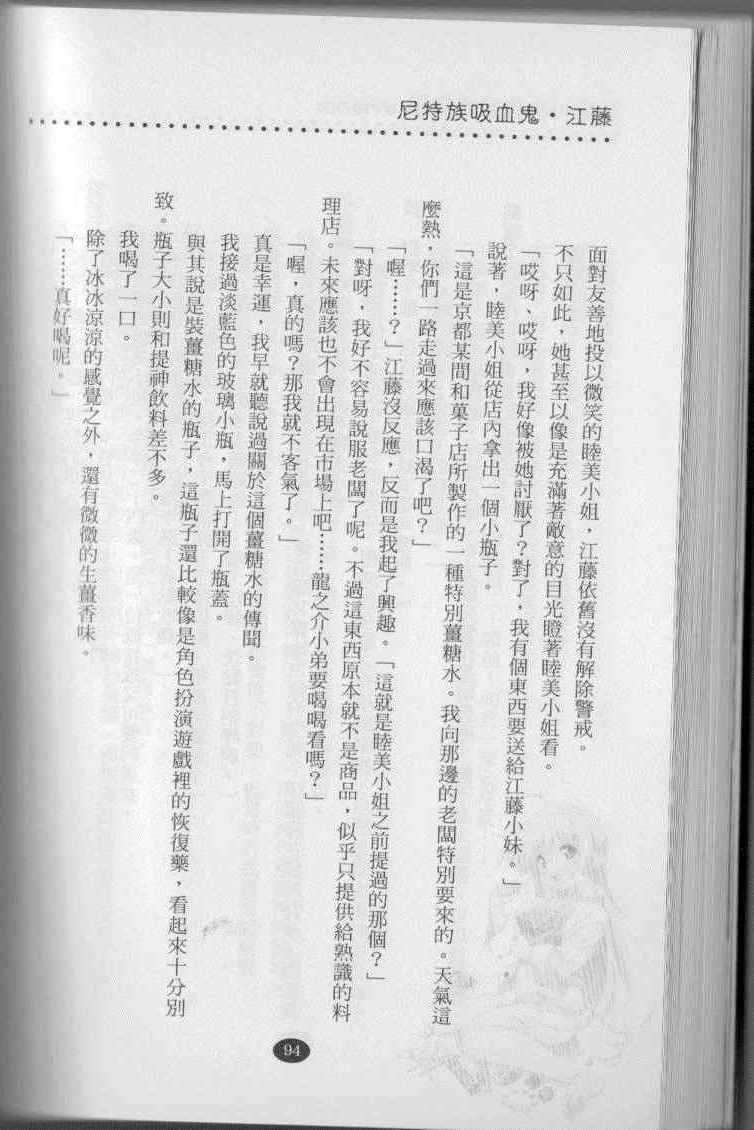 尼特族吸血鬼・江藤
面對友善地投以微笑的睦美小姐，江藤依舊沒有解除警戒。
不只如此，她甚至以像是充滿著敵意的目光瞪著睦美小姐看。
「哎呀、哎呀，我好像被她討厭了？對了，我有個東西要送給江藤小妹。」
說著，睦美小姐從店內拿出一個小瓶子。
「這是京都某間和菓子店所製作的一種特別薑糖水。我向那邊的老闆特別要來的。天氣這
麼熱，你們一路走過來應該口渴了吧？」
「喔……？」江藤沒反應，反而是我起了興趣。「這就是睦美小姐之前提過的那個？」
「對呀，我好不容易說服老闆了呢。不過這東西原本就不是商品，似乎只提供給熟識的料
理店。未來應該也不會出現在市場上吧……龍之介小弟要喝喝看嗎？」
「喔，真的嗎？那我就不客氣了。」
真是幸運，我早就聽說過關於這個薑糖水的傳聞。
我接過淡藍色的玻璃小瓶，馬上打開了瓶蓋。
與其說是裝薑糖水的瓶子，這瓶子還比較像是角色扮演遊戲裡的恢復藥，看起來十分別
致。瓶子大小則和提神飲料差不多。
我喝了一口。
除了冰冰涼涼的感覺之外，還有微微的生薑香味。
「……真好喝呢。」
94